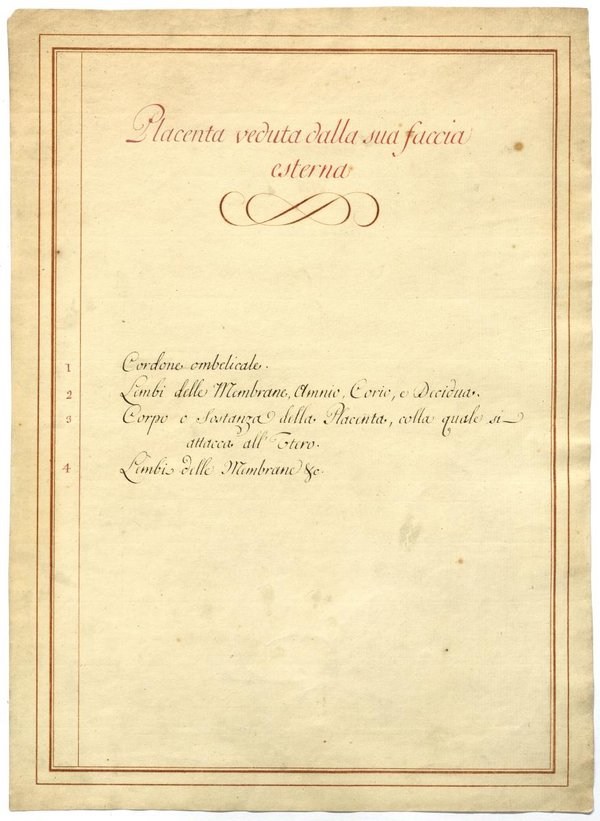 Placenta veduta dalla sua faccia
esterna
1 Cordone ombelicale.
2 Limbi delle Membrane, Amnio, Corio, e Decidua.
3 Corpo o Sostanza della Placenta, colla quale si
attacca all' Utero.
4 Limbi delle Membrane &c.